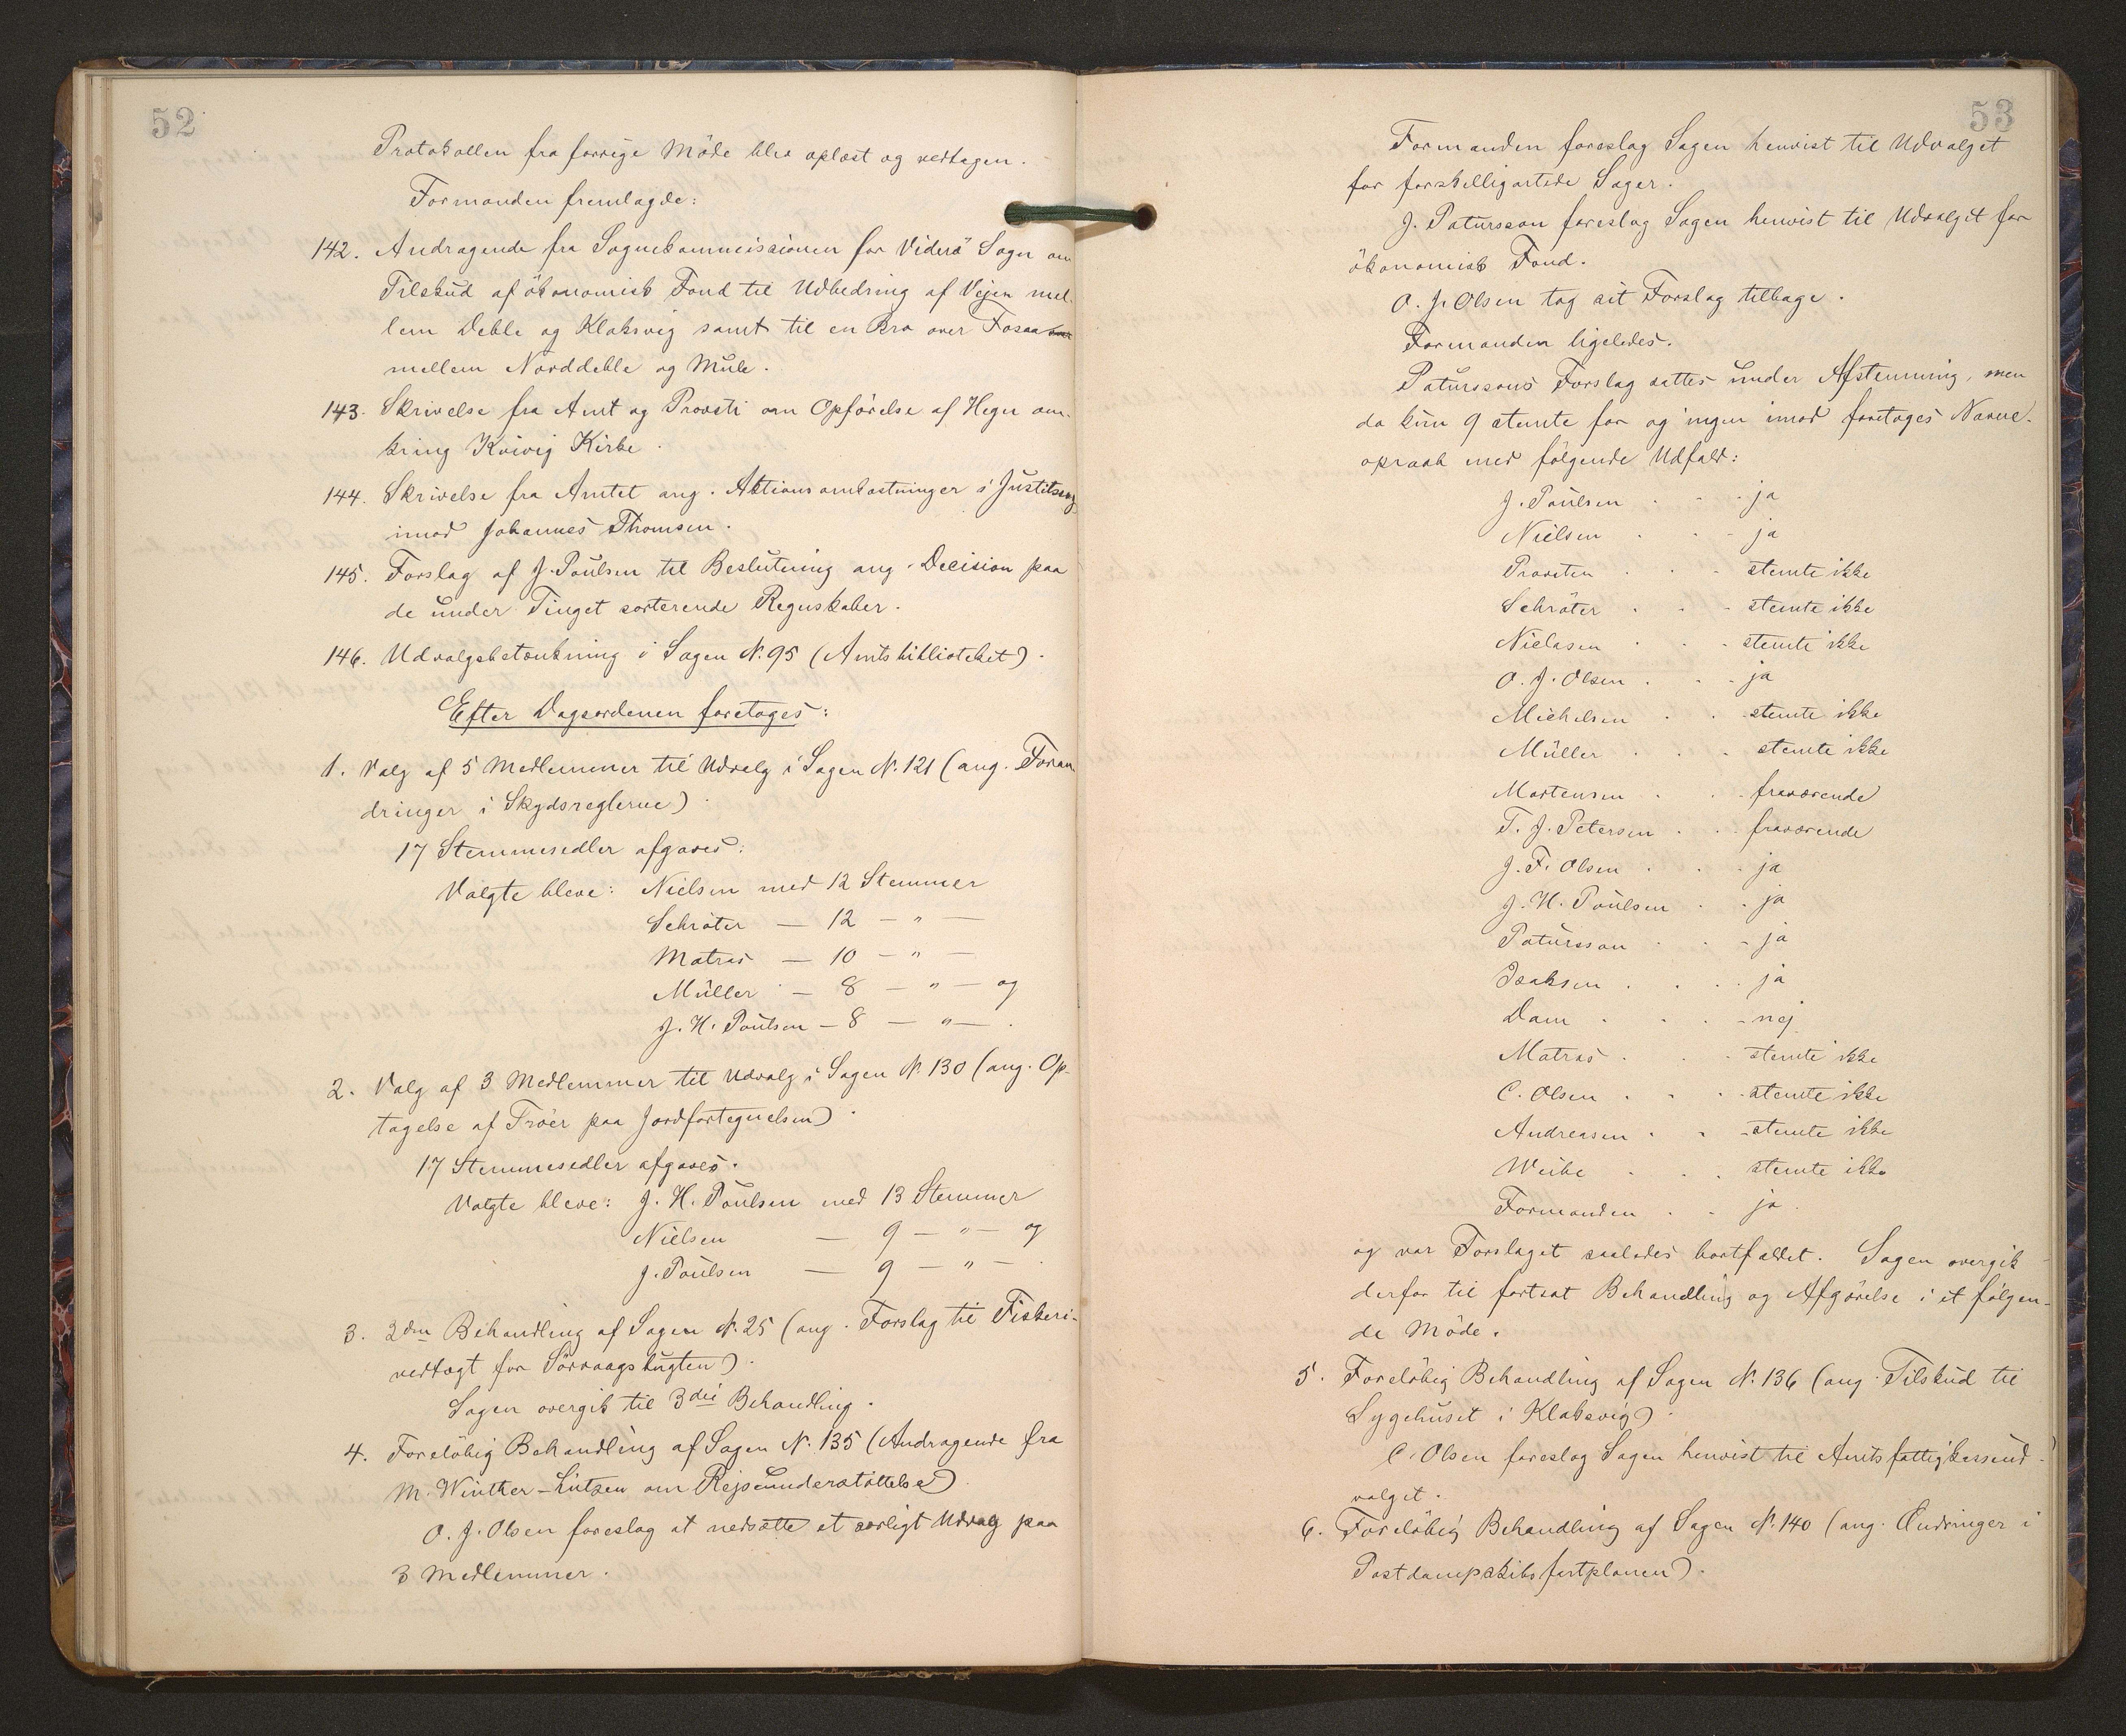 52
Protokollen fra forrige Möde blev oplæst og vedtagen.
Formanden fremlagde:
142. Andragende fra Sognekommissionen for Viderö Sogn om
Tilskud af ökonomisk Fond til Udbedring af Vejen mel-
lem Deble og Klaksvig samt til en Bro over Fosaa
mellem Norddeble og Mule.
143. Skrivelse fra Amt og Provsti om Opförelse af Hegn om-
kring Kvivig Kirke.
144. Skrivelse fra Amtet ang. Aktionsomkostninger i Justitssag
imod Johannes Thomsen.
145. Forslag af J. Poulsen til Beslutning ang. Decision paa
de under Tinget sorterende Regnskaber.
146. Udvalgsbetænkning i Sagen N. 95 (Amtsbiblioteket).
Efter Dagsordenen foretoges:
1. Valg af 5 Medlemmer til Udvalg i Sagen N. 121 (ang. Foran-
dringer i Skydsreglerne).
17 Stemmesedler afgaves:
Valgte bleve: Nielsen med 12 Stemmer
Schröter — 12 — " —
Matras — 10 — " —
Müller — 8 — " — og
J. H. Poulsen — 8 — " — .
2. Valg af 3 Medlemmer til Udvalg i Sagen N. 130 (ang. Op-
tagelse af Tröer paa Jordfortegnelsen).
17 Stemmesedler afgaves.
Valgte bleve: J. H. Poulsen med 13 Stemmer
Nielsen — 9 — " — og
J. Poulsen — 9 — " — .
3. 2den Behandling af Sagen N. 25 (ang. Forslag til Fiskeri-
vedtægt for Sörvaagsbugten).
Sagen overgik til 3die Behandling.
4. Forelöbig Behandling af Sagen N. 135 (Andragende fra
M. Winther-Lützen om Rejseunderstöttelse)
O. J. Olsen foreslog at nedsætte et særligt Udvalg paa
3 Medlemmer.
53
Formanden foreslog Sagen henvist til Udvalget
for forskelligartede Sager.
J. Patursson foreslog Sagen henvist til Udvalget for
ökonomisk Fond.
O. J. Olsen tog sit Forslag tilbage.
Formanden ligeledes.
Paturssons Forslag sattes under Afstemning, men
da kun 9 stemte for og ingen imod foretoges Navne-
opraab med fölgende Udfald:
J. Poulsen . . . ja
Nielsen . . . ja
Provsten . . . stemte ikke
Schröter . . . stemte ikke
Niclasen . . . stemte ikke
O. J. Olsen . . . ja
Michelsen . . . stemte ikke
Müller . . . stemte ikke
Mortensen . . . fraværende
T. J. Petersen . . . fraværende
J. F. Olsen . . . ja
J. H. Poulsen . . ja
Patursson . . . ja
Isaksen . . . . ja
Dam . . . . nej
Matras . . . stemte ikke
C. Olsen . . . stemte ikke
Andreasen . . . stemte ikke
Weihe . . . stemte ikke
Formanden . . ja.
og var Forslaget saaledes bortfaldet. Sagen overgik
derfor til fortsat Behandling og Afgörelse i et fölgen-
de Möde.
5. Forelöbig Behandling af Sagen N. 136 (ang. Tilskud til
Sygehuset i Klaksvig).
C. Olsen foreslog Sagen henvist til Amtsfattigkasseud-
valget.
6. Forelöbig Behandling af Sagen N. 140 (ang. Ændringer i
Postdampskibsfartplanen).